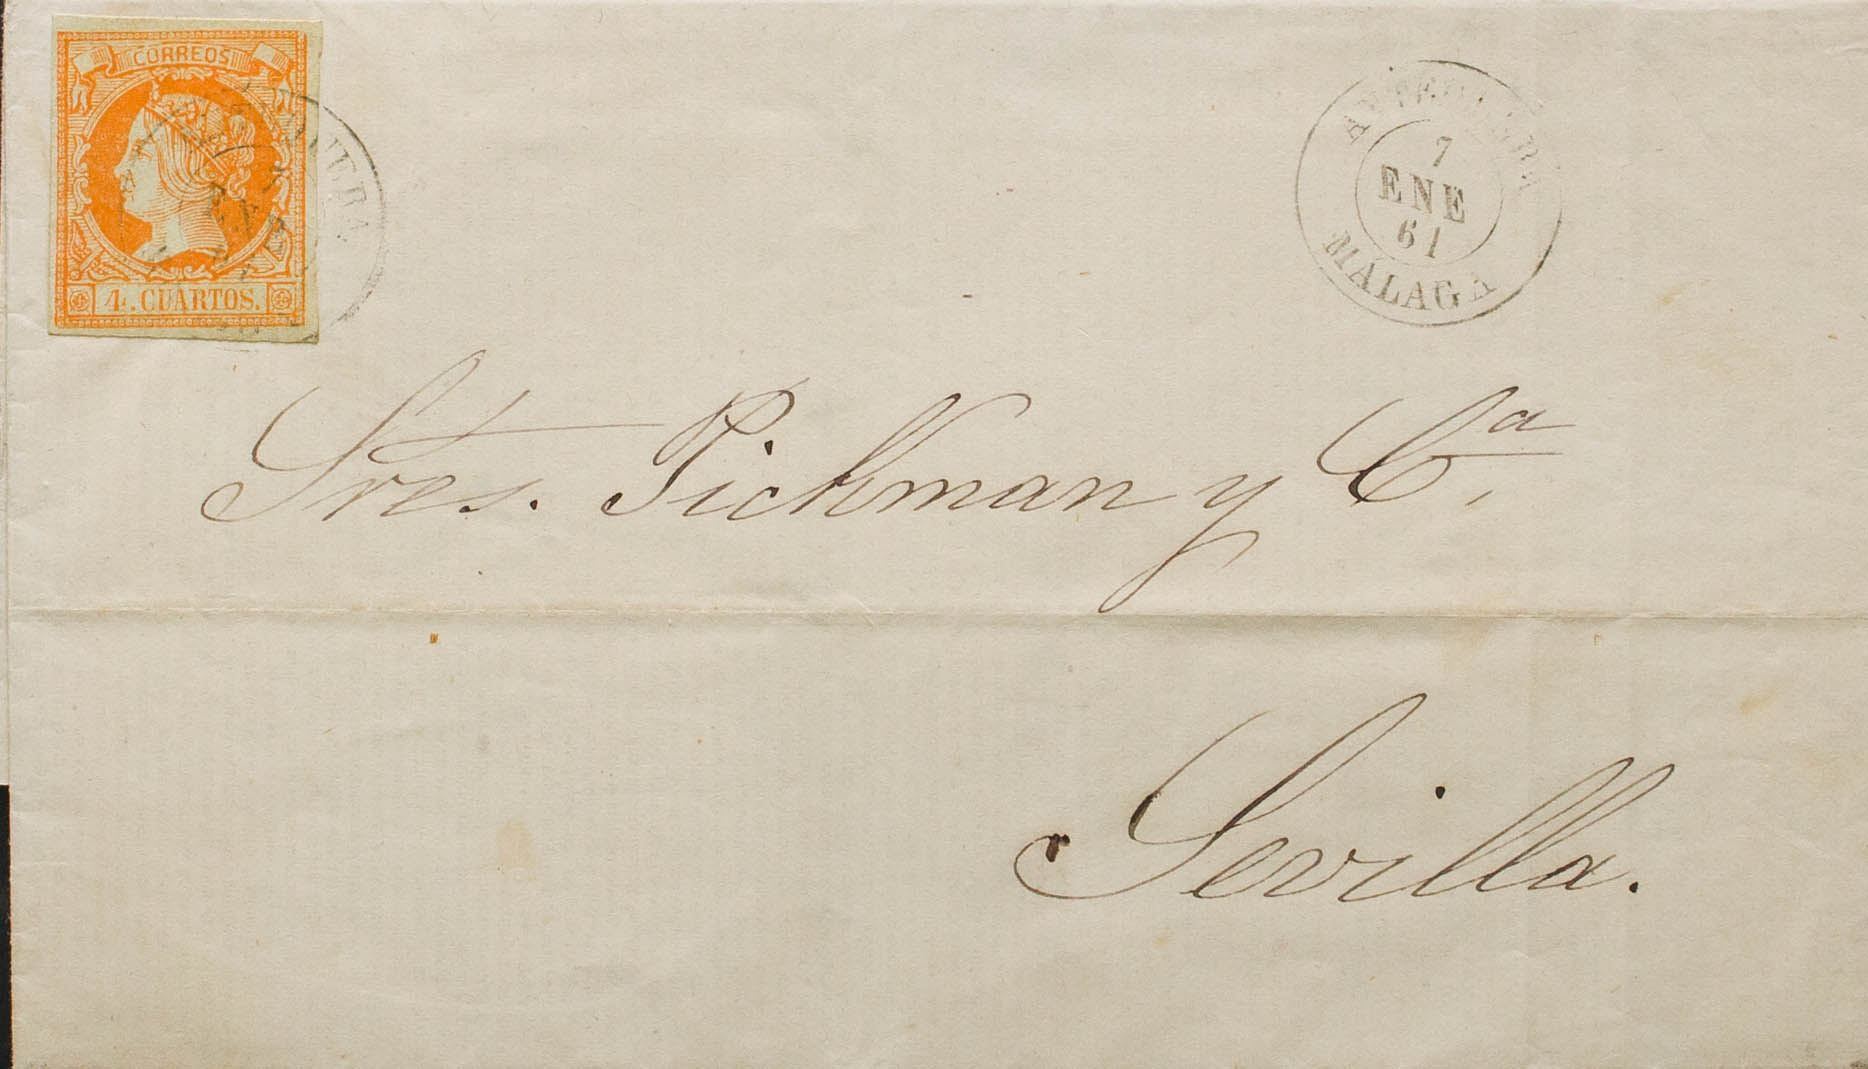 CORREOS
4. CUARTOS.
ANTEQUERA
7
ENE
61
MALAGA
Sres. Pickman y Cª.
Sevilla.